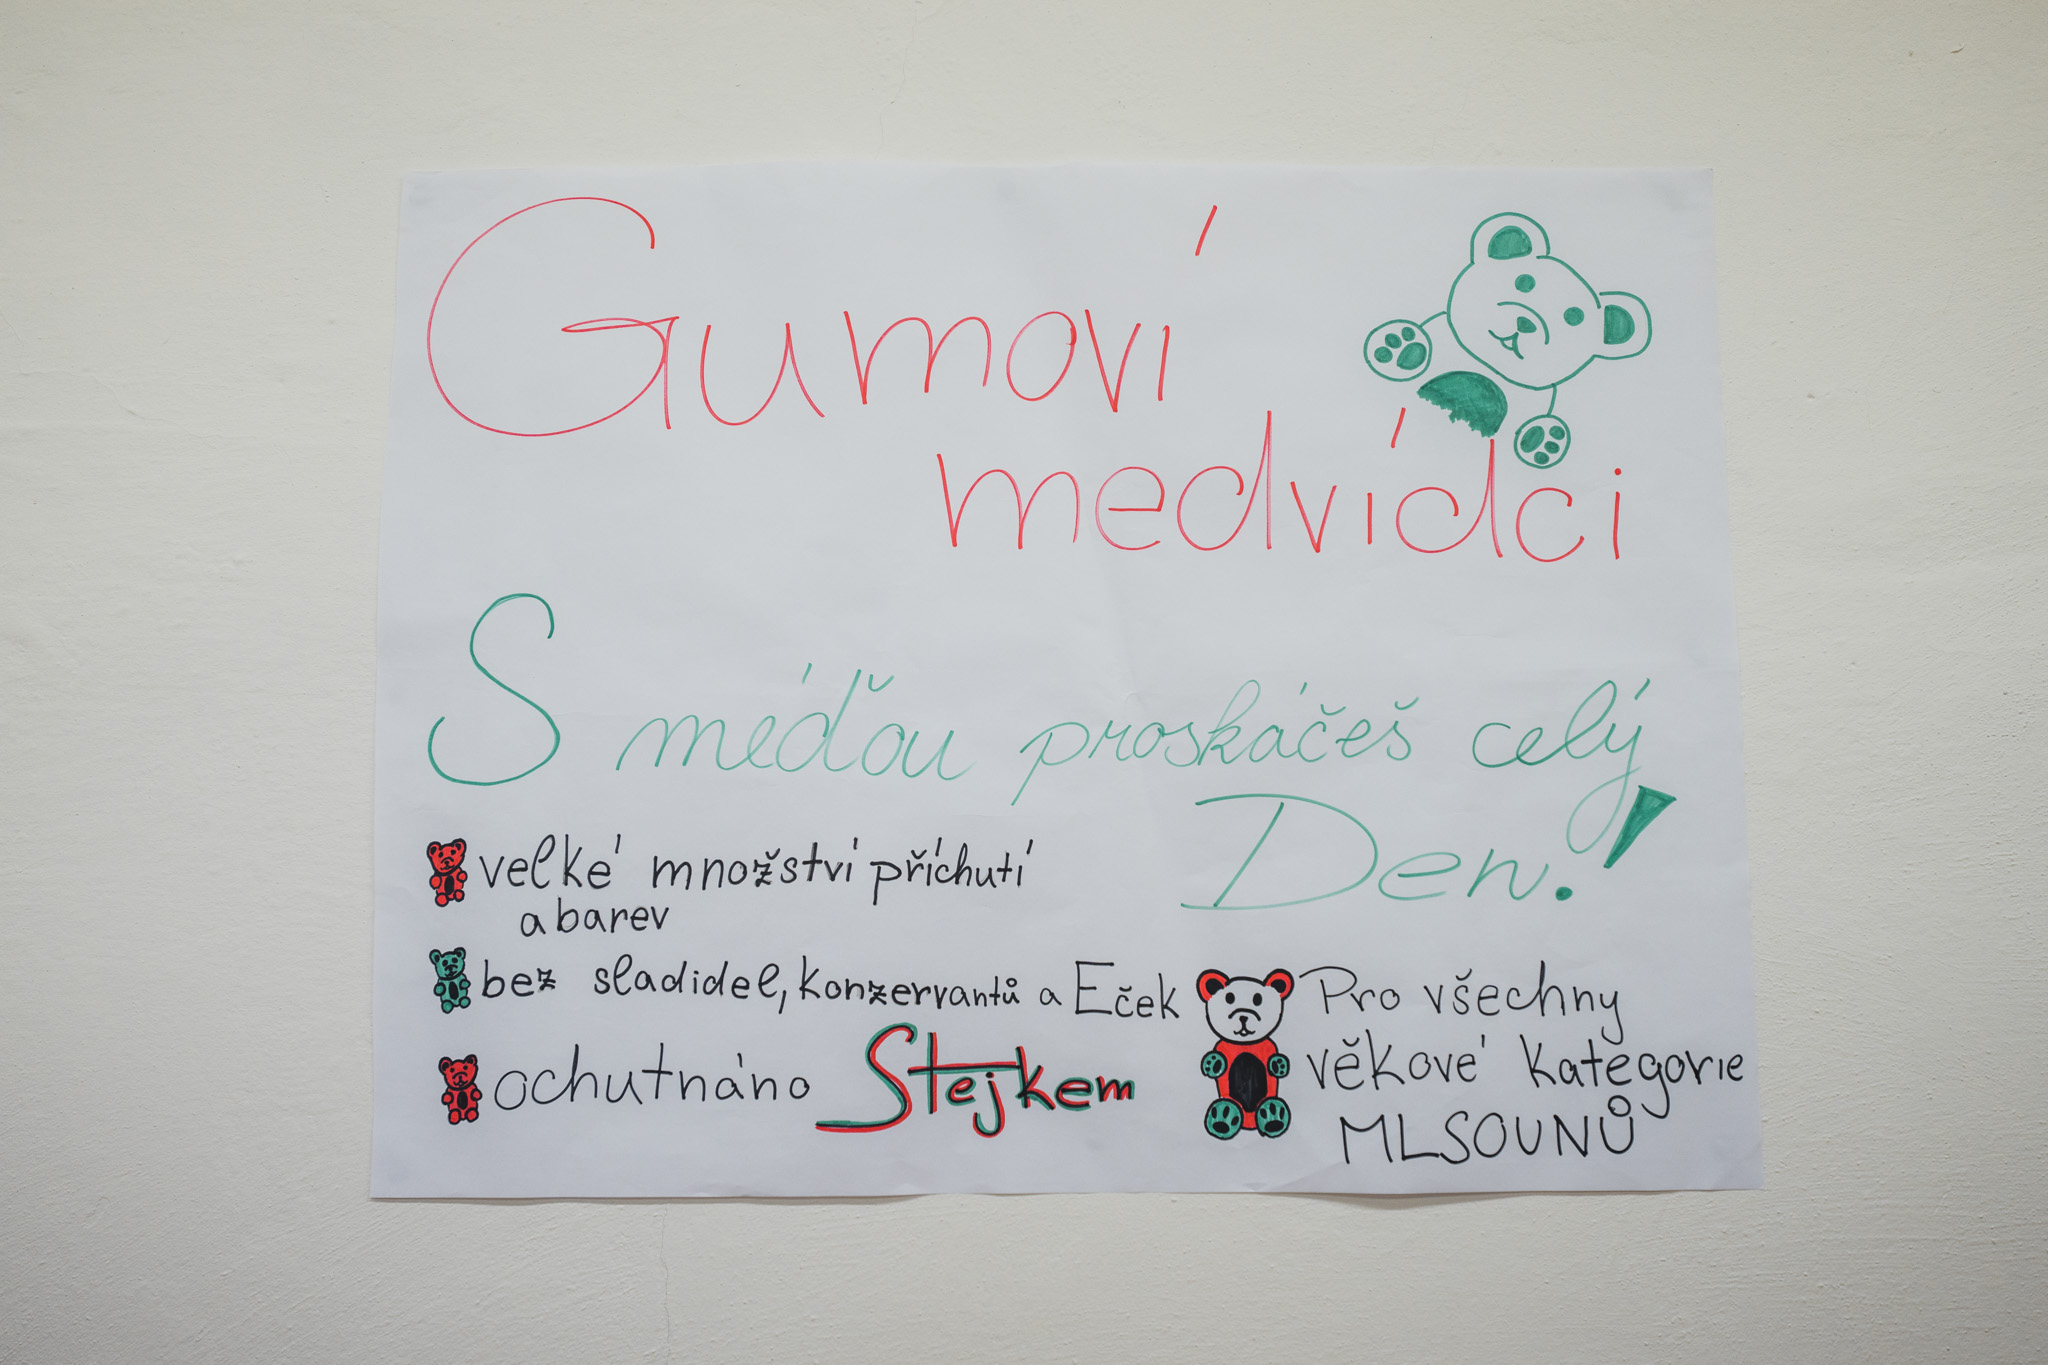 Gumoví
medvídci
S méďou proskáčeš celý
Den!
velké množství příchutí
a barev
bez sladidel, konzervantů a Eček
ochutnáno Stejkem
Pro všechny
věkové kategorie
MLSOUNŮ